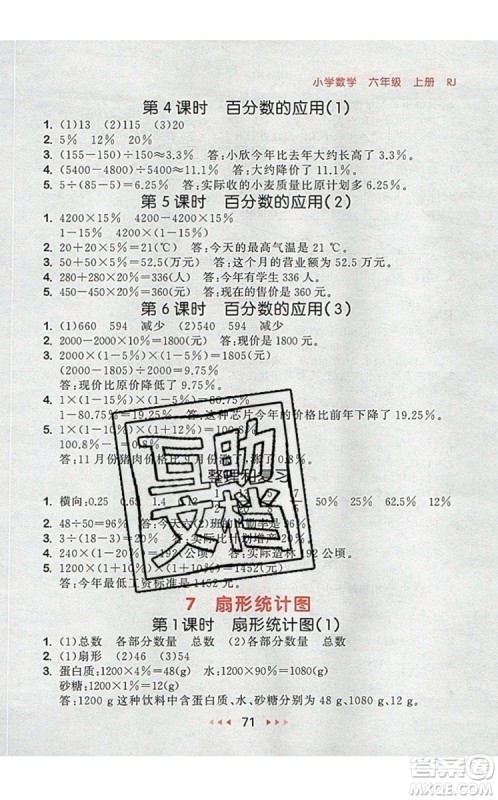 小学数学 六年级 上册 RJ
第4课时 百分数的应用(1)
1. (1)13 (2)115 (3)20
2. 5% 12% 20%
3. (155-150)÷150≈3.3% 答:小欣今年比去年大约长高了3.3%。
4. (5400-4800)÷5400≈11.1% 答:大约降价了11.1%。
5. 5÷(85-5)=6.25% 答:实际收的小麦质量比原计划多6.25%。
第5课时 百分数的应用(2)
1. 4200×15% 4200+4200×15%
1-15% 4200×(1-15%)
2. 20+20×5%=21(℃) 答:今天的最高气温是21℃。
3. 50+50×5%=52.5(万元) 答:这个月的营业额为52.5万元。
4. 280+280×20%=336(人) 答:今年舞蹈班有学生336人。
5. 450-450×20%=360(元) 答:现在的售价是360元。
第6课时 百分数的应用(3)
1. (1)660 594 减少 (2)540 594 减少
2. 2000-2000×10%=1800(元) 答:现价是1800元。
3. 2000×(1-5%)×(1-5%)=1805(元)
(2000-1805)÷2000=9.75%
答:现价比原价降低了9.75%。
4. 1×(1-15%)×(1-5%)=80.75%
1-80.75%=19.25% 答:这种芯片今年的价格比前年降低了19.25%。
5.
100.8%-1=0.8%
答:11月份猪肉价格比
整理和复习
1. 横向:0.25 0.65 1.4 25% 50% 62.5% 12%
2. 48÷50=96% 答:今天六(2)班的出勤率是96%。
3.
4. 240×(1-20%)=192(公顷) 答:实际造林192公顷。
5.
答:今年最低工资标准是1452元。
7 扇形统计图
第1课时 扇形统计图(1)
1. (1)总数 各部分数量 总数 (2)各部分数量 总数
2. (1)扇形 (2)46 (3)54
3. 蛋白质:1200×4%=48(g) 水:1200×90%=1080(g)
砂糖:1200×1%=12(g)
答:1200 g这种饮料中含蛋白质、水、砂糖分别为48 g、1080 g、12 g。
71
互助文档
答案圈
MXQE.COM